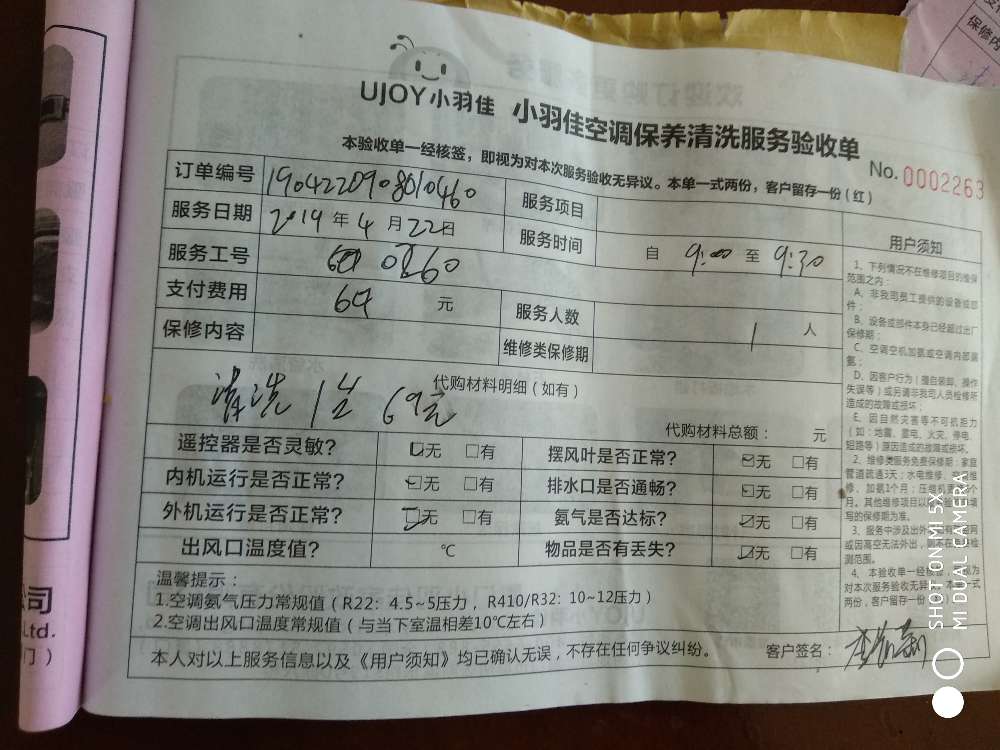 UJOY小羽佳 小羽佳空调保养清洗服务验收单
本验收单一经核签，即视为对本次服务验收无异议。本单一式两份，客户留存一份（红）
No. 0002263
订单编号 1904220908010460 服务项目
服务日期 2019 年 4 月 22 日 服务时间 自 9:00 至 9:30
服务工号 0260
支付费用 69 元 服务人数 1 人
保修内容 维修类保修期
代购材料明细（如有）
清洗 1台 69元
代购材料总额： 元
遥控器是否灵敏？ ☑无 □有 摆风叶是否正常？ ☑无 □有
内机运行是否正常？ ☑无 □有 排水口是否通畅？ ☑无 □有
外机运行是否正常？ ☑无 □有 氨气是否达标？ ☑无 □有
出风口温度值？ ℃ 物品是否有丢失？ ☑无 □有
温馨提示：
1.空调氨气压力常规值（R22：4.5~5压力，R410/R32：10~12压力）
2.空调出风口温度常规值（与当下室温相差10℃左右）
本人对以上服务信息以及《用户须知》均已确认无误，不存在任何争议纠纷。 客户签名：
用户须知
1、下列情况不在维修项目的维保
范围之内：
A、非我司员工提供的设备或部
件；
B、设备或部件本身已经超过出厂
保修期；
C、空调空机加氨或空调内部漏
氨；
D、因客户行为（擅自装卸、操作
失误等）或另请非我司人员检修所
造成的故障或损坏；
E、因自然灾害等不可抗拒力
（如：地震、雷电、火灾、停电、
短路等）原因造成的故障或损坏。
2、维修类服务免费保修期：家庭
管道疏通3天；水电维修、空调维
修、加氨1个月；压缩机更
月。其他维修项目以
写的保修期为准。
3、服务中涉及出外
或因高空无法外出，
测范围。
4、本验收单一经核
对本次服务验收无异
两份，客户留存一份
SHOT ON MI 5X
MI DUAL CAMERA
保修内
公司
Ltd.
门）